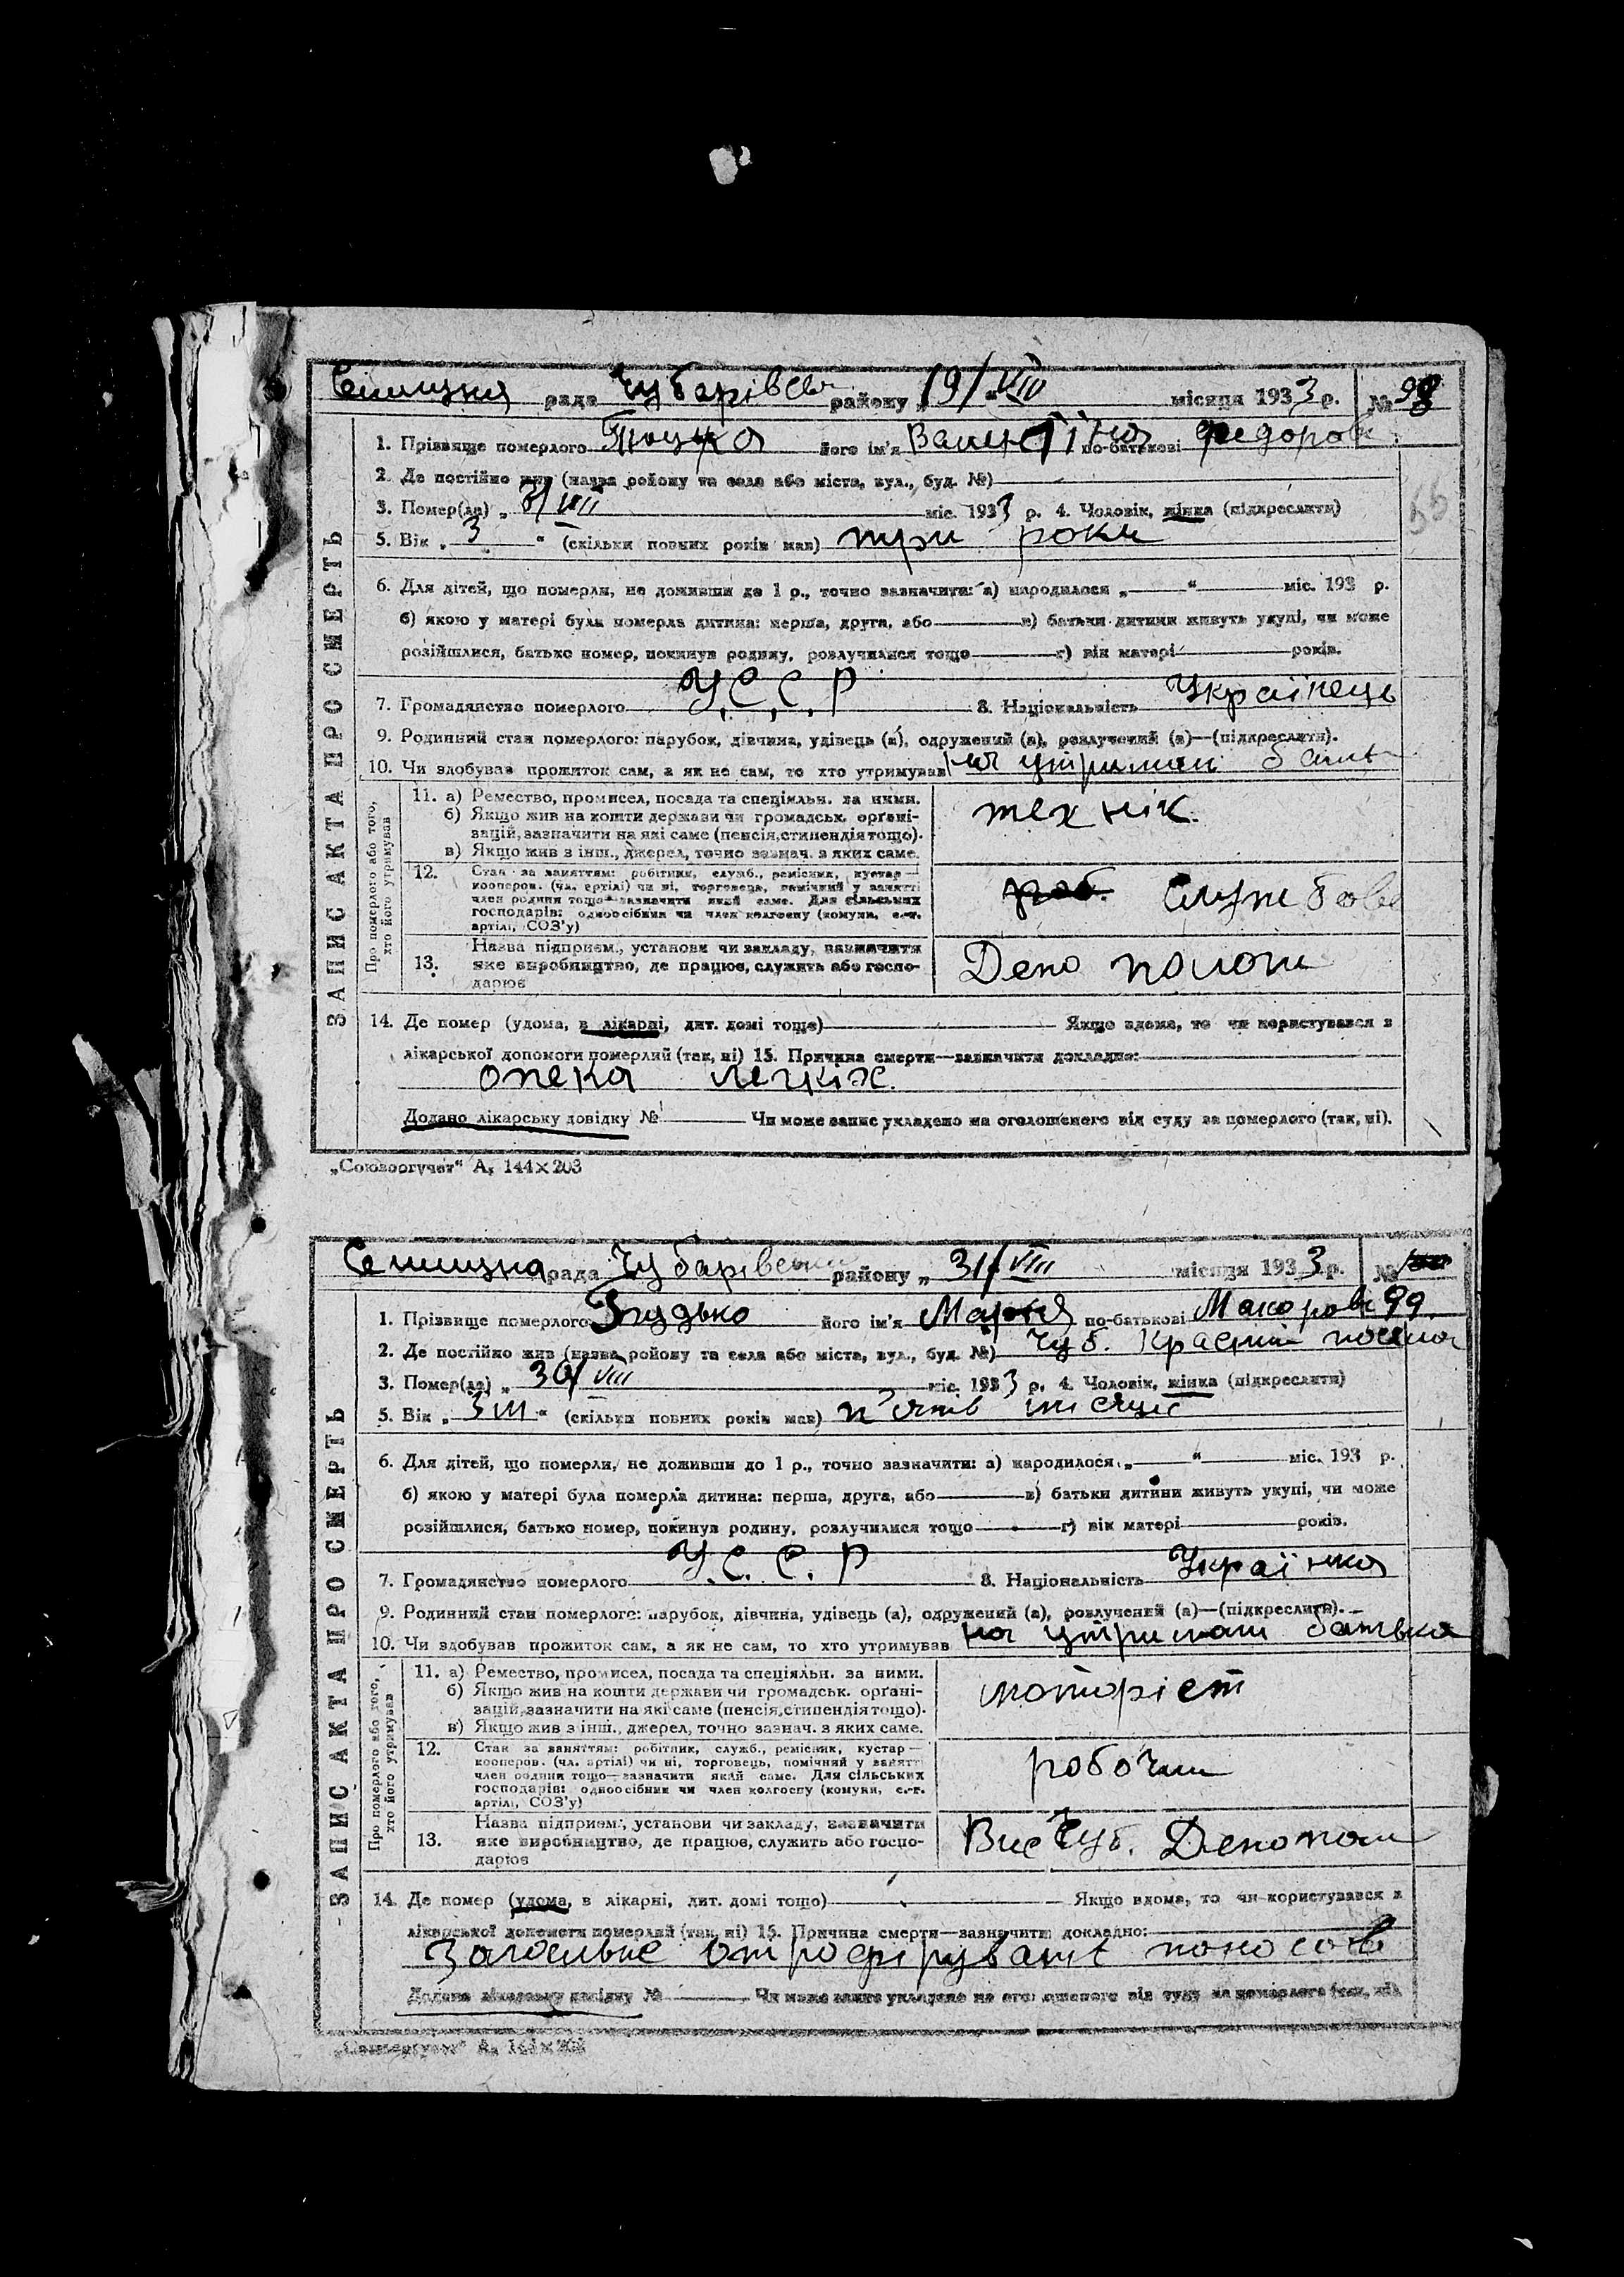 Селищна рада Чубарівськ району „19/VIII місяця 1933 р. № 98
ЗАПИС АКТА ПРО СМЕРТЬ
1. Прізвище померлого його ім'я Валентіна по-батькові Федоров
2. Де постійно жив (назва району та села або міста, вул., буд. №)
3. Помер(ла) „ 3/VIII міс. 1933 р. 4. Чоловік, жінка (підкреслити)
5. Вік „ 3 “ (скільки повних років мав) три роки
6. Для дітей, що померли, не доживши до 1 р., точно зазначити: а) народилося „ “ міс. 193 р.
б) якою у матері була померла дитина: перша, друга, або в) батьки дитини живуть укупі, чи може
розійшлися, батько помер, покинув родину, розлучилися тощо г) вік матері років.
7. Громадянство померлого У.С.С.Р 8. Національність Українець
9. Родинний стан померлого: парубок, дівчина, удівець (а), одружений (а), розлучений (а)—(підкреслити).
10. Чи здобував прожиток сам, а як не сам, то хто утримував на утриман батьк
Про померлого або того, хто його утримував
11. а) Ремество, промисел, посада та спеціяльн. за ними.
б) Якщо жив на кошти держави чи громадськ. органі-
зацій, зазначити на які саме (пенсія, стипендія тощо).
в) Якщо жив з інш., джерел, точно зазнач. з яких саме.
технік.
12. Стан за заняттям: робітник, служб., ремісник, кустар—
кооперов. (чл. артілі) чи ні, торговець, помічний у занятті
член родини тощо—зазначити який саме. Для сільських
господарів: одноосібник чи член колгоспу (комуни, с.-г.
артілі, СОЗ'у)
роб. Службове
13. Назва підприєм., установи чи закладу, зазначити
яке виробництво, де працює, служить або госпо-
дарює
Депо пологи
14. Де помер (удома, в лікарні, дит. домі тощо) Якщо вдома, то чи користувався з
лікарської допомоги померлий (так, ні) 15. Причина смерти—зазначити докладно:
опека легкіх.
Додано лікарську довідку № Чи може запис укладено на оголошеного від суду за померлого (так, ні).
„Союзоргучет“ А₅ 144×203
Селищна рада Чубарівськи району „ 31/VIII місяця 1933 р. №
ЗАПИС АКТА ПРО СМЕРТЬ
1. Прізвище померлого його ім'я Марія по-батькові Макаров 99
2. Де постійно жив (назва району та села або міста, вул., буд. №) Чуб. Красний
3. Помер(ла) „ 30/VIII міс. 1933 р. 4. Чоловік, жінка (підкреслити)
5. Вік „ “ (скільки повних років мав) п'ять місяц
6. Для дітей, що померли, не доживши до 1 р., точно зазначити: а) народилося „ “ міс. 193 р.
б) якою у матері була померла дитина: перша, друга, або в) батьки дитини живуть укупі, чи може
розійшлися, батько помер, покинув родину, розлучилися тощо г) вік матері років.
7. Громадянство померлого У.С.С.Р 8. Національність Українка
9. Родинний стан померлого: парубок, дівчина, удівець (а), одружений (а), розлучений (а)—(підкреслити).
10. Чи здобував прожиток сам, а як не сам, то хто утримував на утриман батька
Про померлого або того, хто його утримував
11. а) Ремество, промисел, посада та спеціяльн. за ними.
б) Якщо жив на кошти держави чи громадськ. органі-
зацій, зазначити на які саме (пенсія, стипендія тощо).
в) Якщо жив з інш., джерел, точно зазнач. з яких саме.
моторіст
12. Стан за заняттям: робітник, служб., ремісник, кустар—
кооперов. (чл. артілі) чи ні, торговець, помічний у занятті
член родини тощо—зазначити який саме. Для сільських
господарів: одноосібник чи член колгоспу (комуни, с.-г.
артілі, СОЗ'у)
робочий
13. Назва підприєм., установи чи закладу, зазначити
яке виробництво, де працює, служить або госпо-
дарює
Чуб. Депо
14. Де помер (удома, в лікарні, дит. домі тощо) Якщо вдома, то чи користувався з
лікарської допомоги померлий (так, ні) 15. Причина смерти—зазначити докладно:
Загальне отрофірування
Додано лікарську довідку № Чи може запис укладено на оголошеного від суду за померлого (так, ні).
„Союзоргучет“ А₅ 144×203